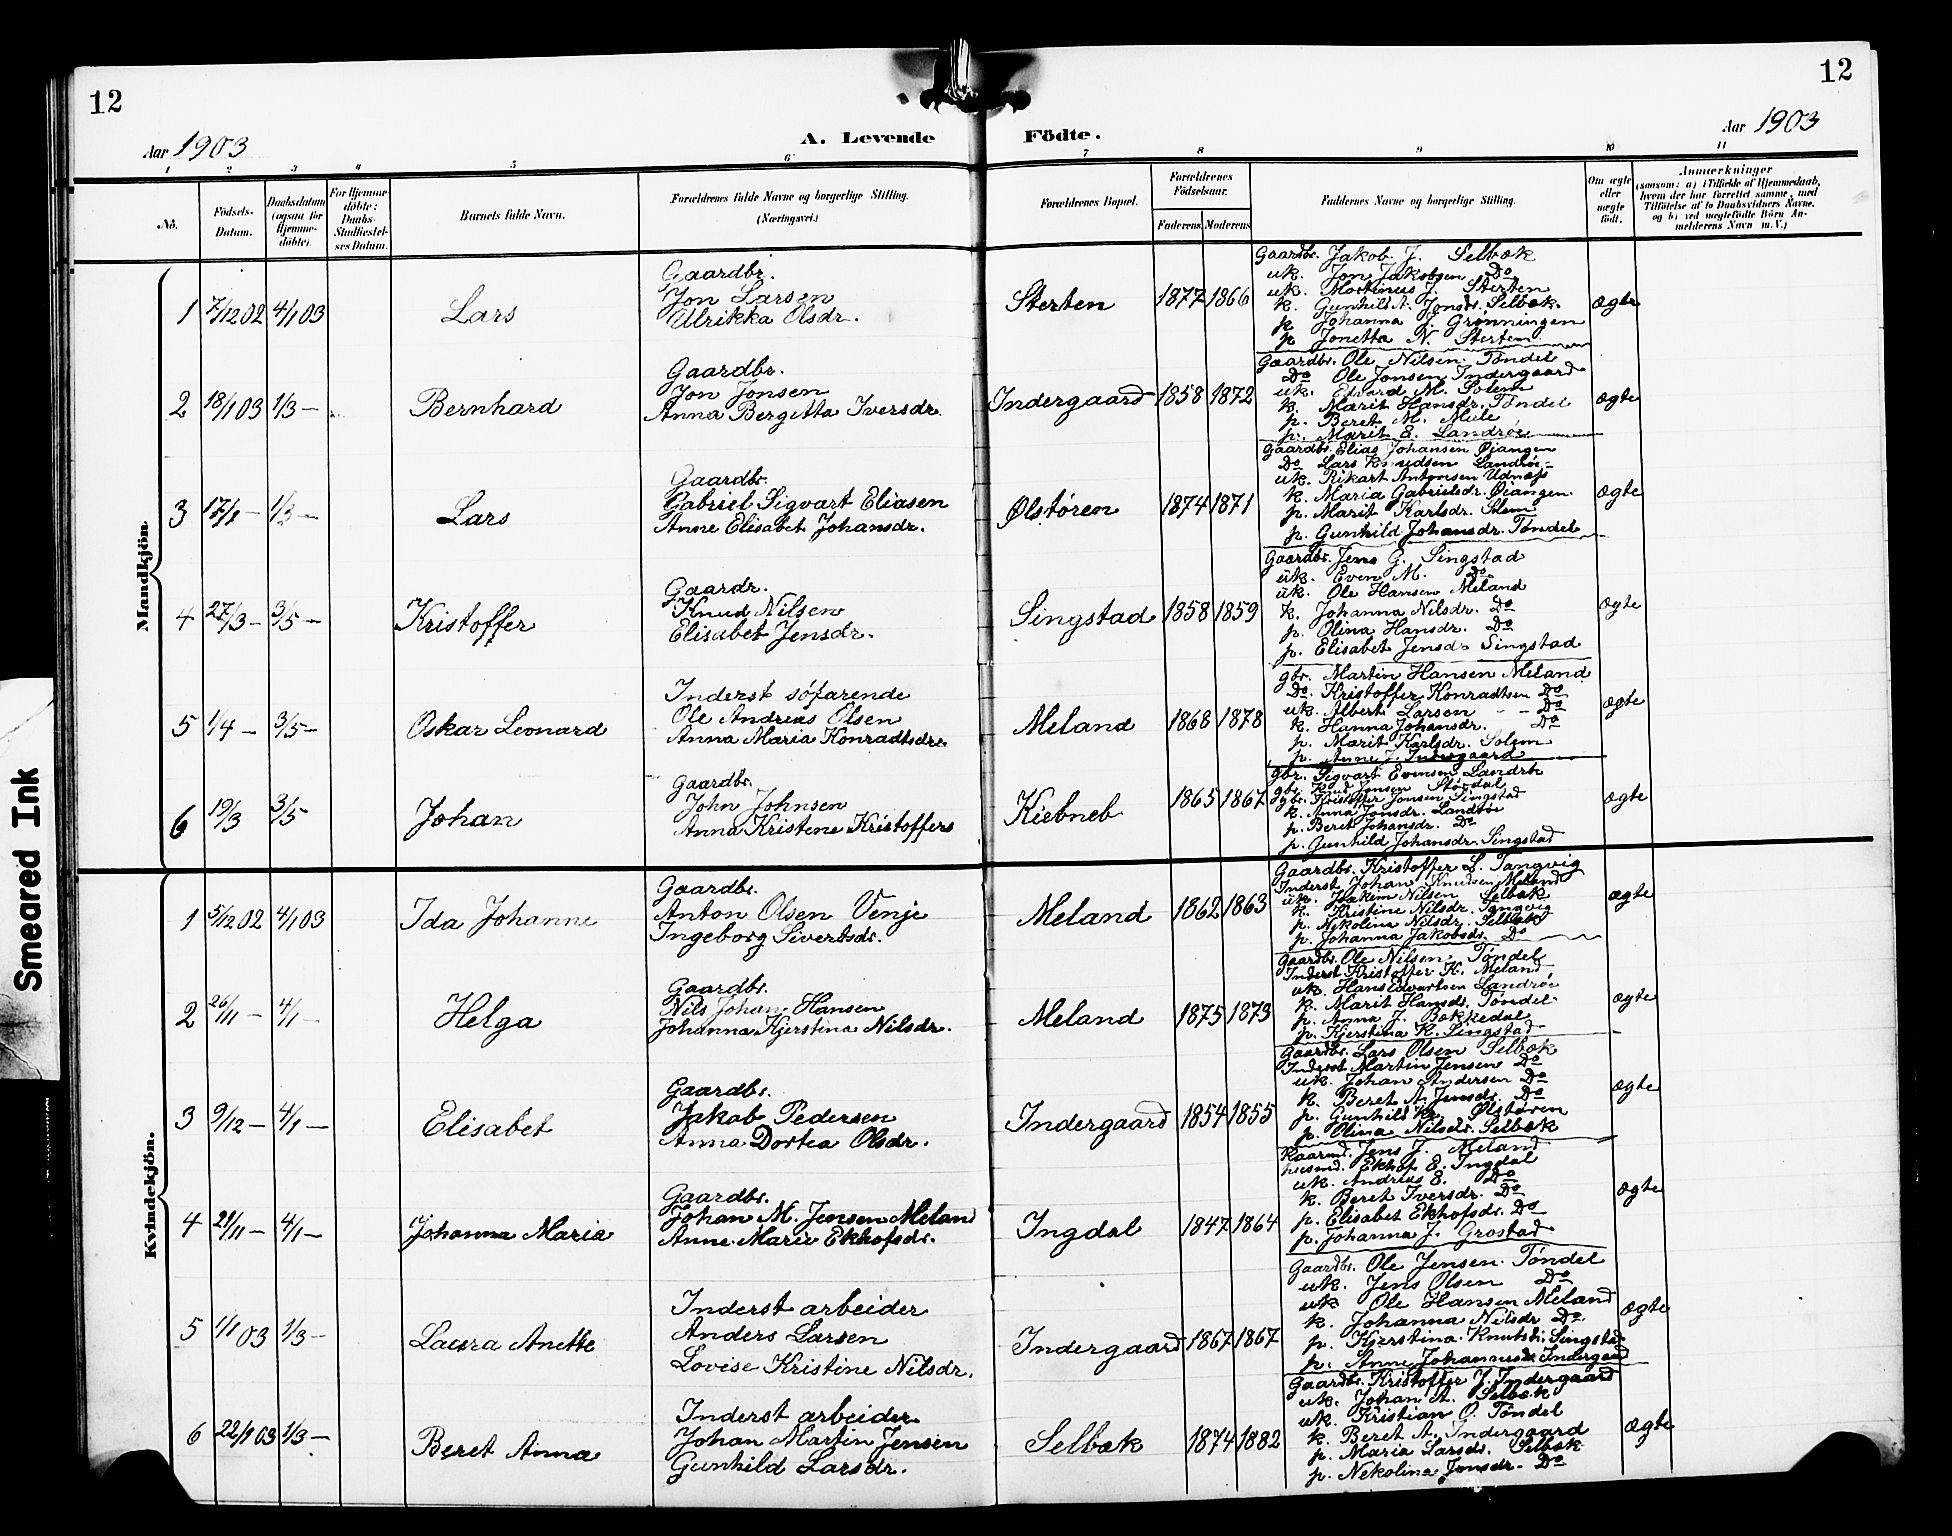 12
12
Aar 1903
A. Levende Födte.
Aar 1903
1 2 3 4 5 6 7 8 9 10 11
No.
Födsels-Datum.
Daabsdatum (ogsaa for Hjemme-döbte).
For Hjemme-döbte: Daabs-Stadfæstel-ses Datum.
Barnets fulde Navn.
Forældrenes fulde Navne og borgerlige Stilling. (Næringsvei.)
Forældrenes Bopæl.
Forældrenes Födselsaar.
Faderens Moderens
Faddernes Navne og borgerlige Stilling.
Om ægte eller uægte födt.
Anmærkninger
(saasom: a) i Tilfælde af Hjemmedaab, hvem der har forrettet samme, med Tilföielse af to Daabsvidners Navne, og b) ved uægtefödte Börn An-melderens Navn m. V.)
Mandkjön
1 7/12 02 4/1 03 Lars
Gaardbr.
Jon Larsen
Ulrikka Olsdr.
Sterten 1877 1866
Gaardbr. Jakob J. Selbæk
uk. Jon Jakobsen Do
uk. Martinus J. Sterten
k. Gunhild A. Jonsdr. Selbæk
p. Johanna J. Grønningen
p. Jonetta N. Sterten
ægte
2 18/1 03 1/3 – Bernhard
Gaardbr.
Jon Jonsen
Anna Bergitta Iversdr.
Indergaard 1858 1872
Gaardbr. Ole Nilsen Tøndel
Do Ole Jonsen Indergaard
uk. Edvard M. Solem
k. Marit Hansdr. Tøndel
p. Beret M. Mele
p. Marit E. Landrøe
ægte
3 17/1 – 1/3 – Lars
Gaardbr.
Gabriel Sigvart Eliasen
Anne Elisabet Johansdr.
Ølstøren 1874 1871
Gaardbr. Elias Johansen Øiangen
Do Lars Knudsen Landrøe
uk. Rikart Antonsen
k. Maria Gabrielsdr. Øiangen
p. Marit Karlsdr. Solem
p. Gunhild Johansdr. Tøndel
ægte
4 27/3 – 3/5 – Kristoffer
Gaardr.
Knud Nilsen
Elisabet Jensdr.
Singstad 1858 1859
Gaardbr. Jens G. Singstad
uk. Even M. Do
uk. Ole Hansen Meland
k. Johanna Nilsdr. Do
p. Olina Hansdr. Do
p. Elisabet Jensd. Singstad
ægte
5 1/4 – 3/5 – Oskar Leonard
Inderst söfarende
Ole Andreas Olsen
Anna Maria Konradtsdr.
Meland 1868 1878
gbr. Martin Hansen Meland
Do. Kristoffer Konradtsen Do
uk. Albert Larsen – – Do
k. Hanna Johansdr. Do
p. Marit Karlsdr. Solem
p. Anne J. Indergaard
ægte
6 19/3 3/5 Johan
Gaardbr.
John Johnsen
Anna Kristene Kristoffers
Kiebneb 1865 1867
gbr. Sigvart Evensen Landrøe
gbr. Knud Jensen Størdal
gbr. Kristoffer Jonsen Singstad
k. Anna Jonsdr. Landrøe
p. Beret Johansdr. Do
p. Gunhild Johansdr. Singstad
ægte
Kvindekjön.
1 5/12 02 4/1 03 Ida Johanne
Gaardbr.
Anton Olsen Venje
Ingeborg Sivertsdr.
Meland 1862 1863
Gaardbr. Kristoffer L. Tangvig
Inderst Johan Knudsen Meland
uk. Joakim Nilsen Selbæk
k. Kristine Nilsdr. Tangvig
p. Nekolina Nilsdr. Selbæk
p. Johanna Jakobsdr. Do
ægte
2 26/11 – 4/1 – Helga
Gaardbr.
Nils Johan Hansen
Johanna Kjerstina Nilsdr.
Meland 1875 1873
Gaardbr. Ole Nilsen Tøndel
Inderst Kristoffer K. Meland
uk. Hans Edvartsen Landrøe
k. Marit Hansdr. Tøndel
p. Anna J. Bakkedal
p. Kjerstina K. Singstad
ægte
3 9/12 – 4/1 – Elisabet
Gaardbr.
Jakob Pedersen
Anna Dortea Olsdr.
Indergaard 1854 1855
Gaardbr. Lars Olsen Selbæk
Inderst Martin Jensen Do
uk. Johan Andersen Do
k. Beret A. Jensdr. Do
p. Gunhild Kr. Ølstøren
p. Olina Nilsdr. Selbæk
ægte
4 21/11 – 4/1 – Johanna Maria
Gaardbr.
Johan M. Jensen Meland
Anne Marie Ekhofsdr.
Ingdal 1847 1864
Kaarmd. Jens J. Meland
husmd. Ekhof E. Ingdal
uk. Andreas E. Do
k. Beret Iversdr. Do
p. Elisabet Ekhofsdr. Do
p. Johanna J. Grostad
ægte
5 1/1 03 1/3 – Laura Anette
Inderst arbeider
Anders Larsen
Lovise Kristine Nilsdr.
Indergaard 1867 1867
Gaardbr. Ole Jensen Tøndel
uk. Jens Olsen Do
uk. Ole Hansen Meland
k. Johanna Nilsdr Do
p. Kjerstina Knutsdr. Singstad
p. Anne Johannesdr. Indergaard
ægte
6 22/1 03 1/3 – Beret Anna
Inderst arbeider
Johan Martin Jensen
Gunhild Larsdr.
Selbæk 1874 1882
Gaardbr. Kristoffer J. Indergaard
uk. Johan A. Selbæk
uk. Kristian O. Tøndel
k. Beret A. Indergaard
p. Maria Larsdr. Selbæk
p. Nekolina Jonsdr. Do
ægte
Smeared Ink